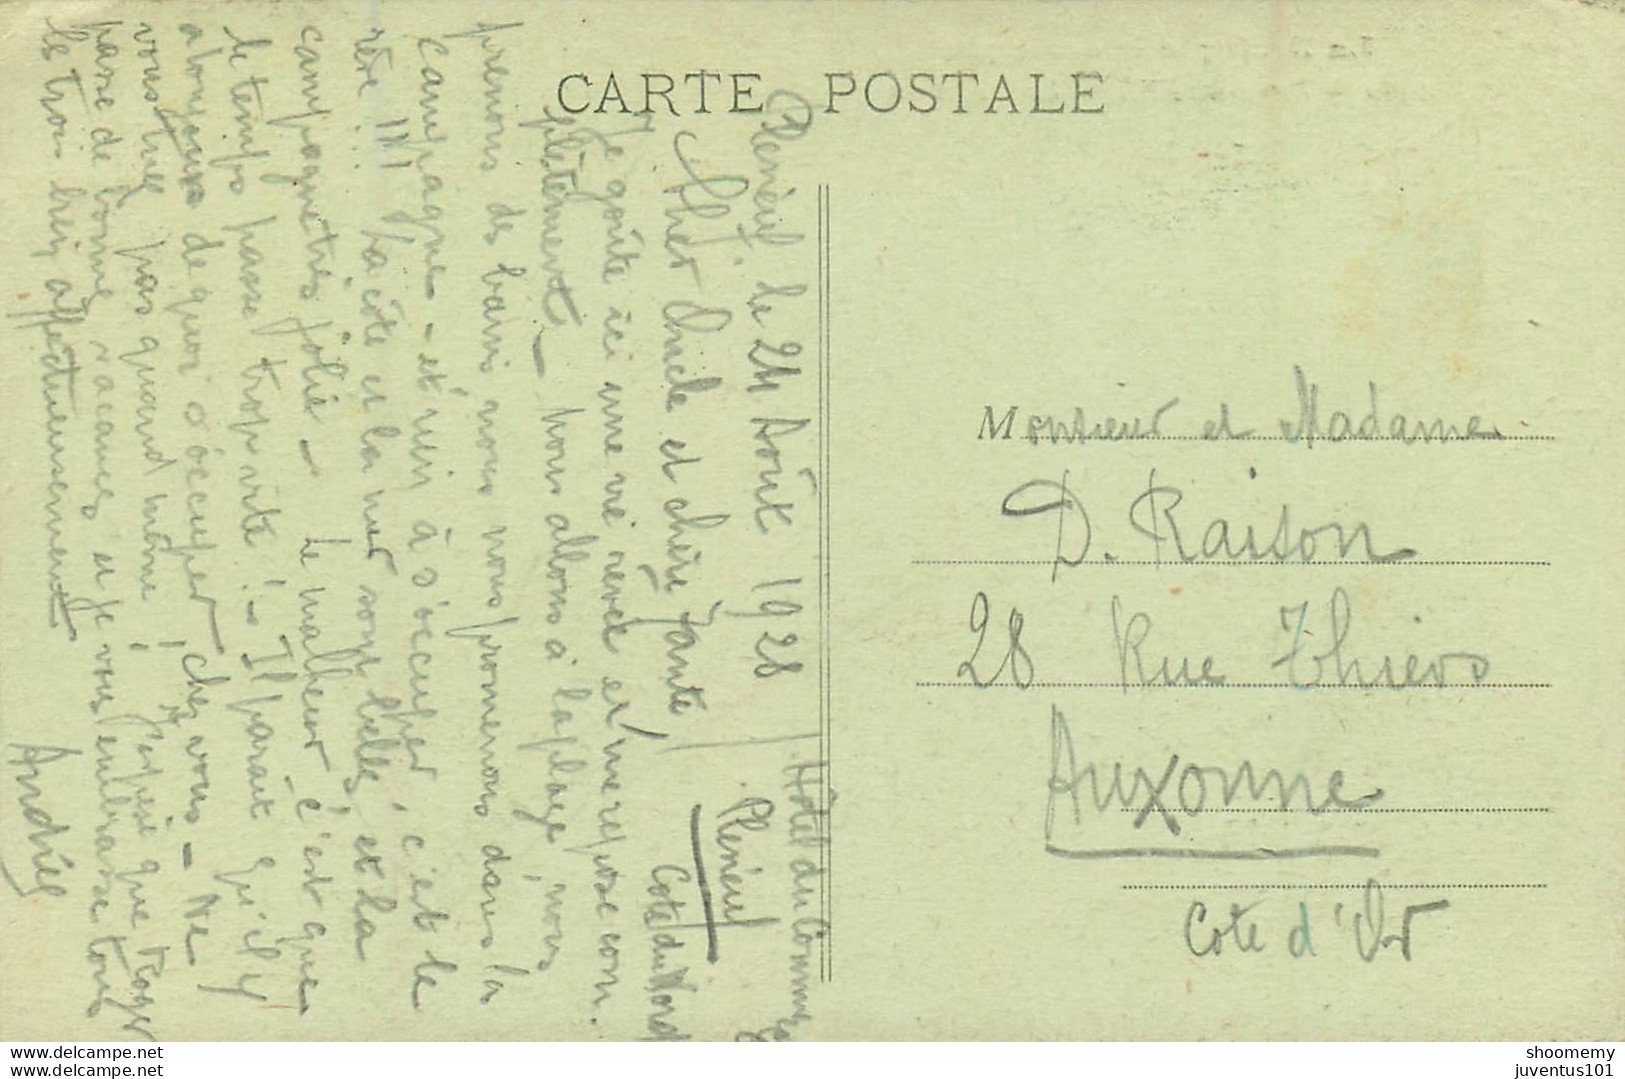 CARTE POSTALE
Plénéuf, le 24 Août 1928 / Hôtel du Commerce
Plénéuf
Côte du Nord
Cher Oncle et chère Tante,
Je goûte ici une vie rêvée et me repose com-
plètement — nous allons à la plage, nous
prenons des bains, nous nous promenons dans la
campagne — et rien à s'occuper, c'est le
rêve !!! La côte et la mer sont belles, et la
campagne très jolie — Le malheur c'est que
le temps passe trop vite ! — Il paraît qu'il y
a toujours de quoi s'occuper, chez vous — Ne
vous tuez pas quand même ! J'espère que Roger
passe de bonnes vacances et je vous embrasse tous
les trois bien affectueusement
Andrée
Monsieur et Madame
D. Raison
28 Rue Thiers
Auxonne
Cote d'Or
www.delcampe.net
www.delcampe.net
shoomemy
juventus101